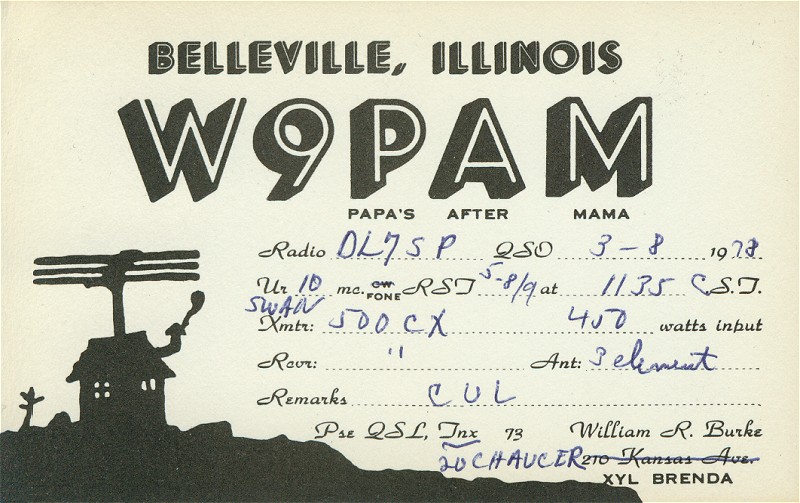 BELLEVILLE, ILLINOIS
W9PAM
PAPA'S AFTER MAMA
Radio DL7SP QSO 3-8 1978
Ur 10 mc. CW FONE RST 5-8/9 at 1135 C.S.T.
SWAN
Xmtr: 500 CX 450 watts input
Rcvr: " Ant: 3 element
Remarks CUL
Pse QSL, Tnx 73 William R. Burke
20 CHAUCER 210 Kansas Ave.
XYL BRENDA